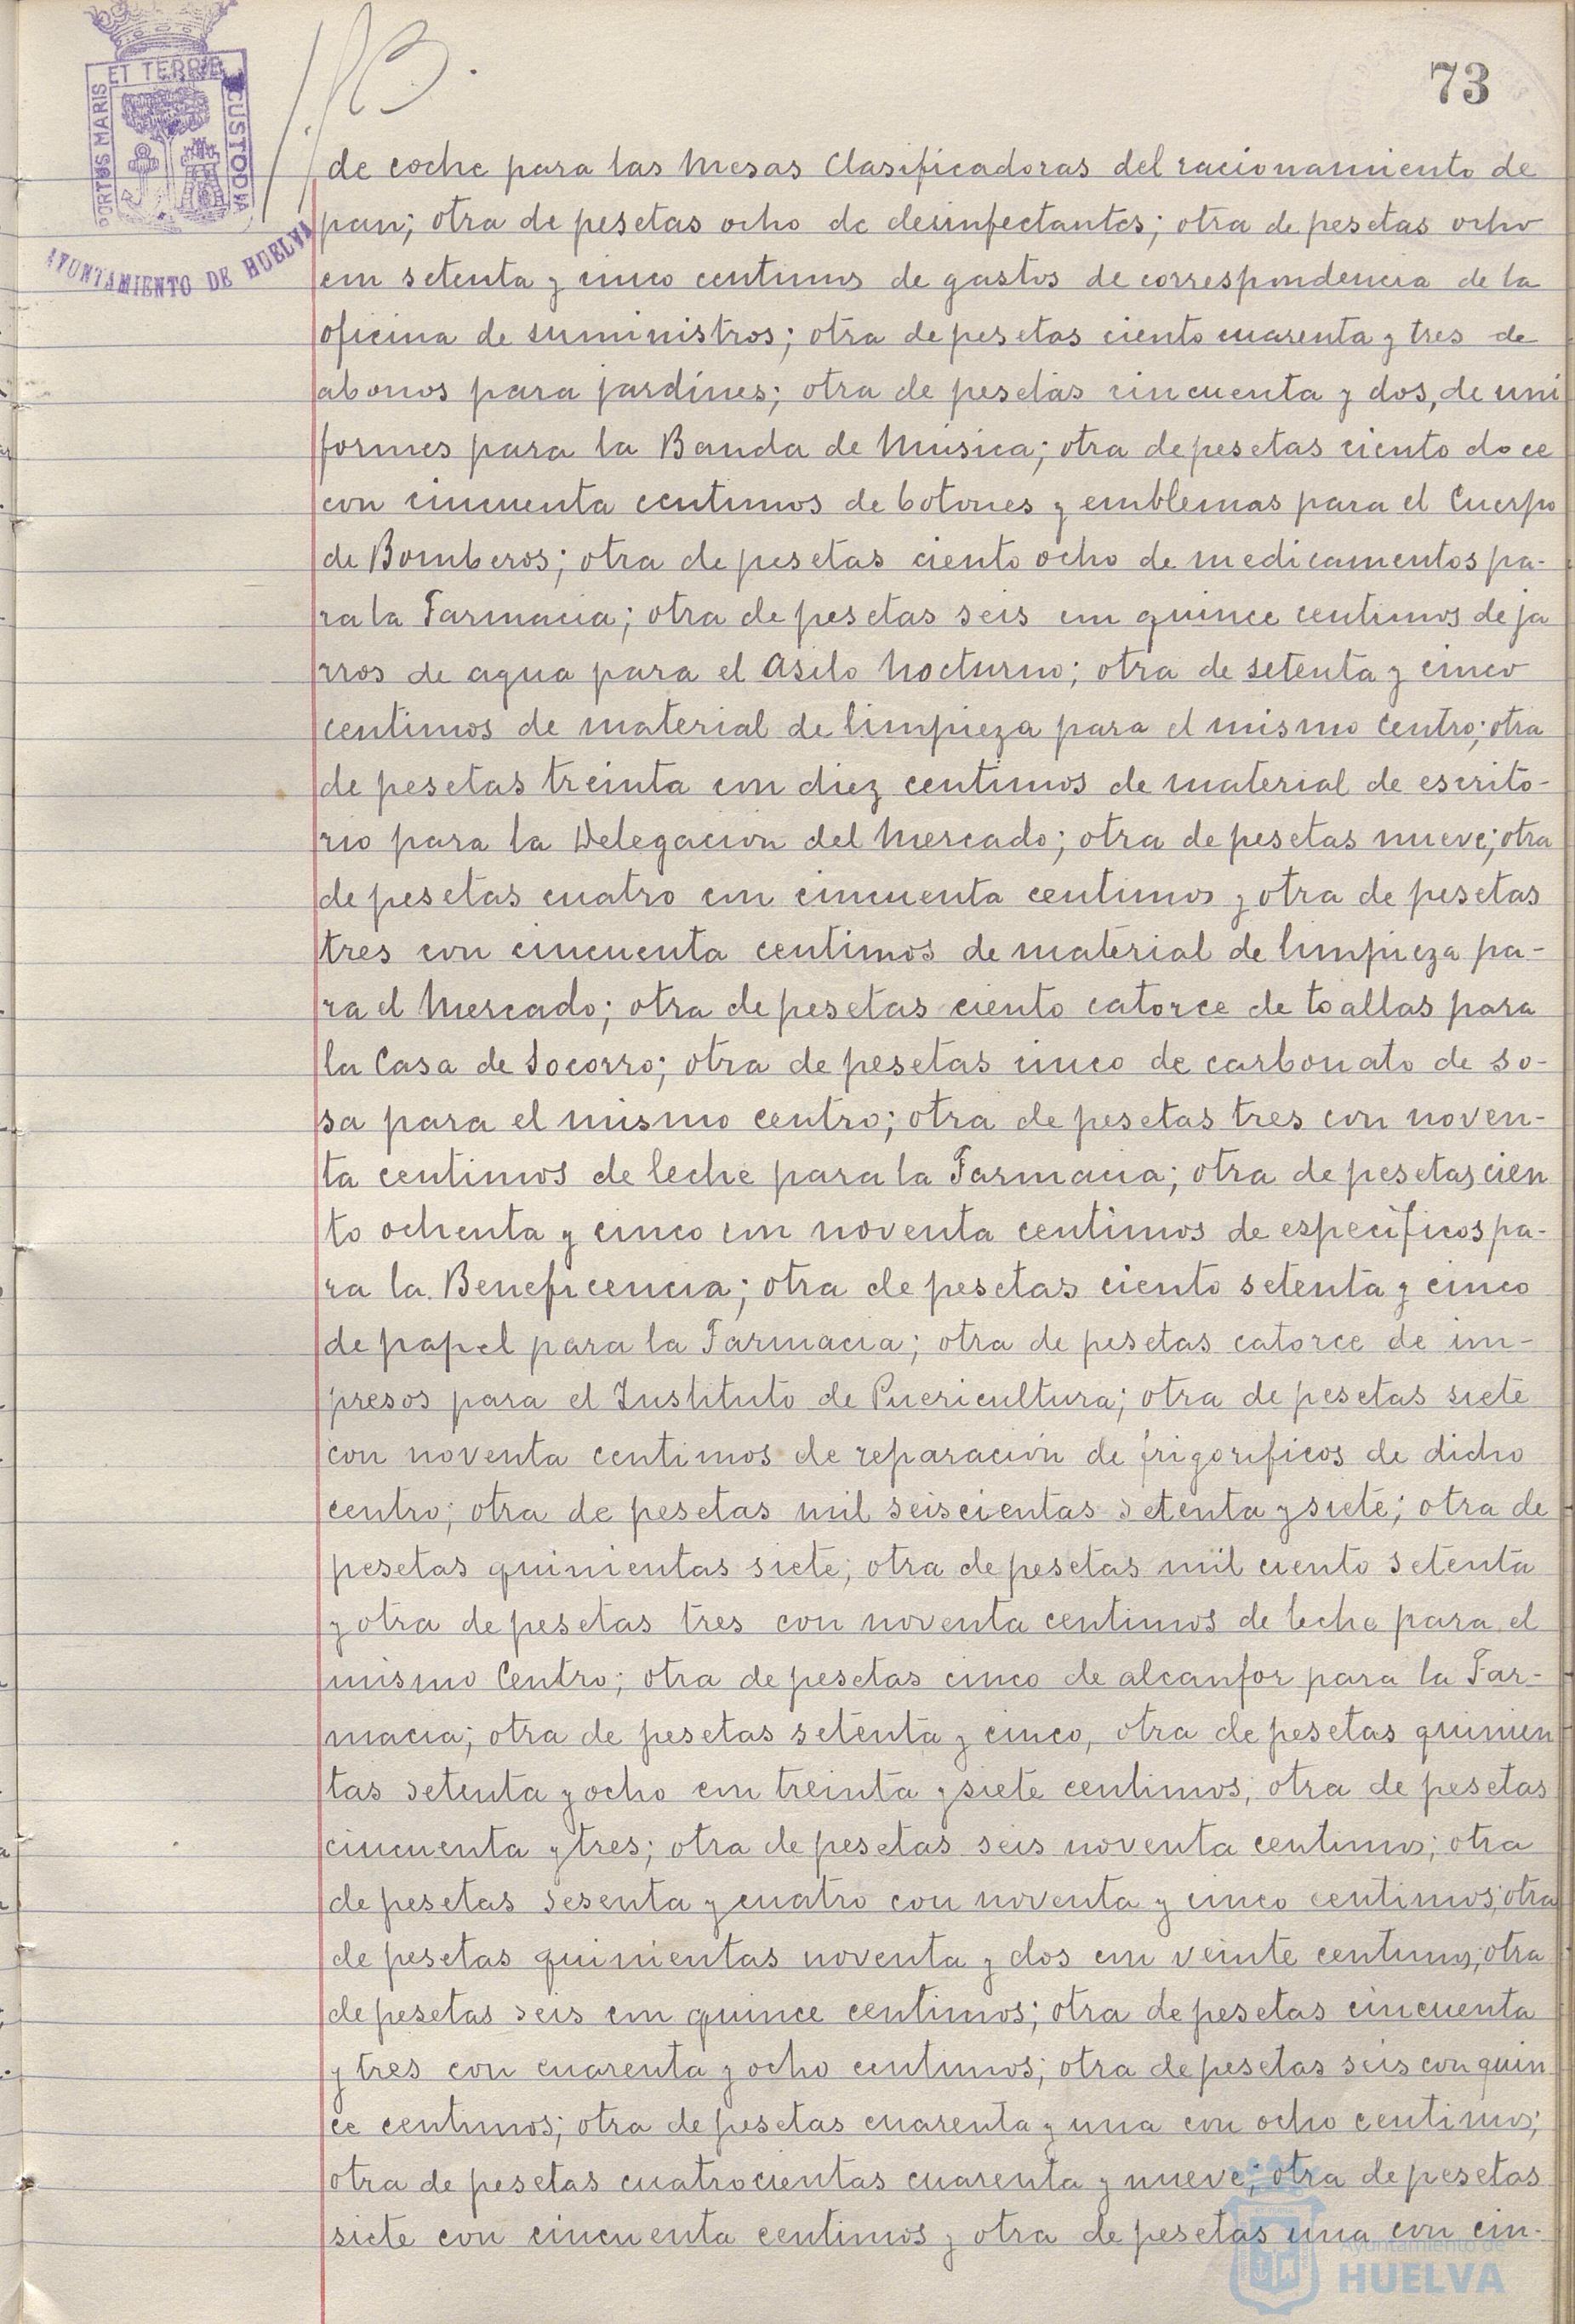 73
PORTUS MARIS ET TERRÆ CUSTODIA
AYUNTAMIENTO DE HUELVA
de coche para las Mesas Clasificadoras del racionamiento de
pan; otra de pesetas ocho de desinfectantes; otra de pesetas ocho
con setenta y cinco centimos de gastos de correspondencia de la
oficina de suministros; otra de pesetas ciento cuarenta y tres de
abonos para jardines; otra de pesetas cincuenta y dos, de uni
formes para la Banda de Música; otra de pesetas ciento doce
con cincuenta centimos de botones y emblemas para el Cuerpo
de Bomberos; otra de pesetas ciento ocho de medicamentos pa-
ra la Farmacia; otra de pesetas seis con quince centimos de ja
rros de agua para el Asilo Nocturno; otra de setenta y cinco
centimos de material de limpieza para el mismo centro; otra
de pesetas treinta con diez centimos de material de escrito-
rio para la Delegacion del Mercado; otra de pesetas nueve; otra
de pesetas cuatro con cincuenta centimos y otra de pesetas
tres con cincuenta centimos de material de limpieza pa-
ra el Mercado; otra de pesetas ciento catorce de toallas para
la Casa de Socorro; otra de pesetas cinco de carbonato de so-
sa para el mismo centro; otra de pesetas tres con noven-
ta centimos de leche para la Farmacia; otra de pesetas cien
to ochenta y cinco con noventa centimos de específicos pa-
ra la Beneficencia; otra de pesetas ciento setenta y cinco
de papel para la Farmacia; otra de pesetas catorce de im-
presos para el Instituto de Puericultura; otra de pesetas siete
con noventa centimos de reparación de frigorificos de dicho
centro; otra de pesetas mil seiscientas setenta y siete; otra de
pesetas quinientas siete; otra de pesetas mil ciento setenta
y otra de pesetas tres con noventa centimos de leche para el
mismo Centro; otra de pesetas cinco de alcanfor para la Far-
macia; otra de pesetas setenta y cinco, otra de pesetas quinien
tas setenta y ocho con treinta y siete centimos; otra de pesetas
cincuenta y tres; otra de pesetas seis noventa centimos; otra
de pesetas sesenta y cuatro con noventa y cinco centimos; otra
de pesetas quinientas noventa y dos con veinte centimos; otra
de pesetas seis con quince centimos; otra de pesetas cincuenta
y tres con cuarenta y ocho centimos; otra de pesetas seis con quin
ce centimos; otra de pesetas cuarenta y una con ocho centimos;
otra de pesetas cuatrocientas cuarenta y nueve; otra de pesetas
siete con cincuenta centimos y otra de pesetas una con cin-
Ayuntamiento de
HUELVA